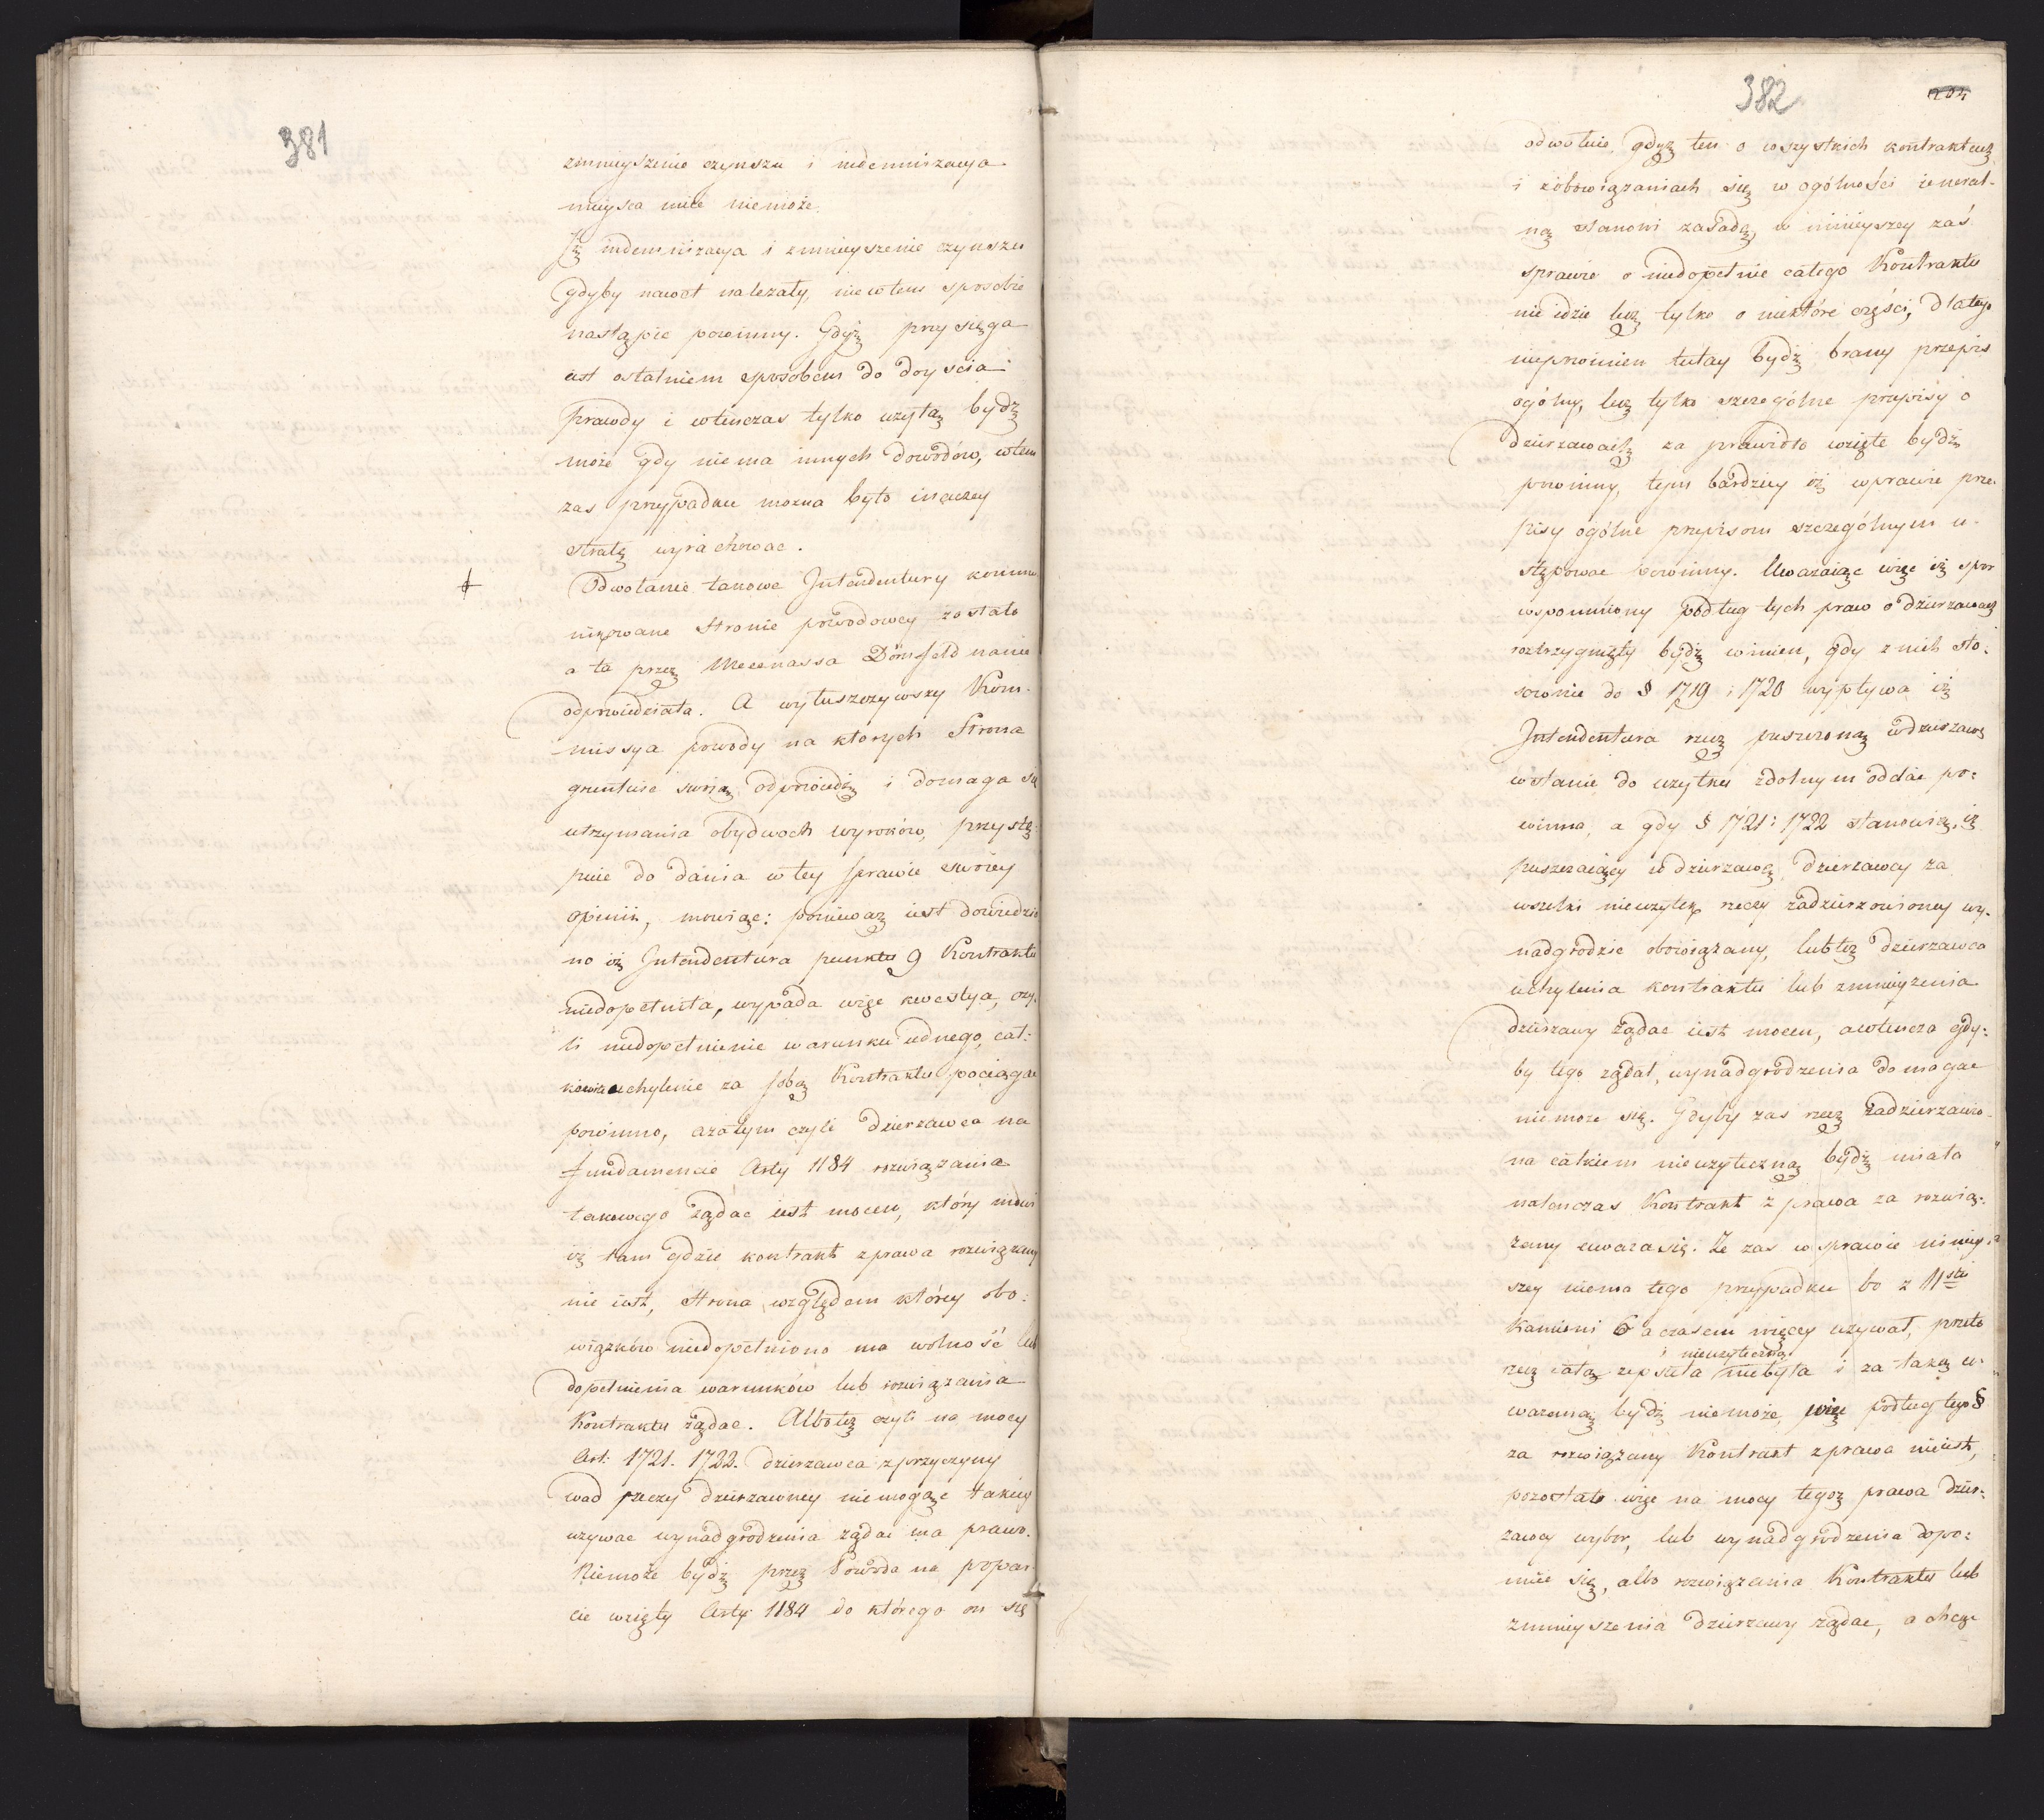 381
zmnieyszenie czynszu i indemnizacya
mieysca mieć niemoże.
Jż indemnizacya i zmnieyszenie czynszu
gdyby nawet należały, niewtem sposobie
nastąpić powinny. Gdyż przysięga
iest ostatniem sposobem do doyscia
prawdy i wtenczas tylko użytą bydź
może gdy niema innych dowodów, wtem
zas przypadku można było inaczey
stratę wyrachować.
Odwołanie takowe Intendentury kommu
nikowane Stronie powodowey zostało
a ta przez Mecenassa Dömsfeld nanie
odpowiedziała. A wyłuszczywszy Kom-
missya powody na ktorych Strona
gruntuie swoią odpowiedź i domaga się
utrzymania obydwoch wyroków, przystę-
puie do dania w tey sprawie swoiey
opinii, mowiąc: ponieważ iest dowiedzio
no iż Intendentura punktu 9 Kontraktu
niedopełniła, wypada więc kwestya, czy-
li niedopełnienie warunku iednego, cał-
kowite uchylenie za sobą Kontraktu pociągać
powinno, azatym czyli dzierzawca na
fundamencie Arty 1184 rozwiązania
takowego żądać iest mocen, który mowi
iż tam gdzie kontrakt z prawa rozwiązany
nie iest, Strona względem którey obo-
wiązków niedopełniono ma wolność lub
dopełnienia warunków lub rozwiązania
Kontraktu żądać. Alboteż czyli na mocy
Art: 1721. 1722. dzierzawca z przyczyny
wad rzeczy dzierzawney niemogąc takiey
używać wynadgrodzenia żądać ma prawo.
Niemoże bydź przez Powoda na popar-
cie wzięty Arty 1184 do którego on się
382
204
odwołuie, gdyż ten o wszystkich kontraktach
i zobowiązaniach się w ogólności ieneral-
ną stanowi zasadę, w ninieyszey zaś
sprawie o niedopełnie całego Kontraktu
nie idzie lecz tylko o niektóre części, dlatego
niepowinien tutay bydź brany przepis
ogólny, lecz tylko szczególne przepisy o
dzierzawach za prawidło wzięte bydź
powinny, tym bardziey iż w prawie prze-
pisy ogólne przepisom szczególnym u-
stępować powinny. Uważaiąc więc iż spor
wspomniony podług tych praw o dzierzawach
roztrzygnięty bydź winien, gdy z nich sto-
sownie do § 1719 i 1720 wypływa iż
Intendentura rzecz puszczoną w dzierzawę
w stanie do użytku zdolnym oddać po-
winna, a gdy § 1721 i 1722 stanowią, iż
puszczaiący w dzierzawę dzierzawcy za
wszelki nieużytek rzeczy zadzierzawioney wy-
nadgrodzić obowiązany, lubteż dzierzawca
uchylenia kontraktu lub zmnieyszenia
dzierzawy żądać iest mocen, a wtencza gdy-
by tego żądał, wynadgrodzenia domagać
niemoże się. Gdyby zas rzecz zadzierzawio-
na całkiem nieużyteczną bydź miała
natenczas Kontrakt z prawa za rozwią-
zany uważa się. Ze zas w sprawie niniey-
szey niema tego przypadku bo z 11stu
Kamieni 6 a czasem więcey używał, przeto
i nieużyteczną
rzecz całą zepsuta niebyła i za taką u-
ważaną bydź niemoże, więc podług tego §
za rozwiązany Kontrakt z prawa nieiest,
pozostało więc na mocy tegoż prawa dzier-
zawcy wybor, lub wynadgrodzenia dopo-
mnieć się, albo rozwiązania Kontraktu lub
zmnieyszenia dzierzawy żądać, a chcąc